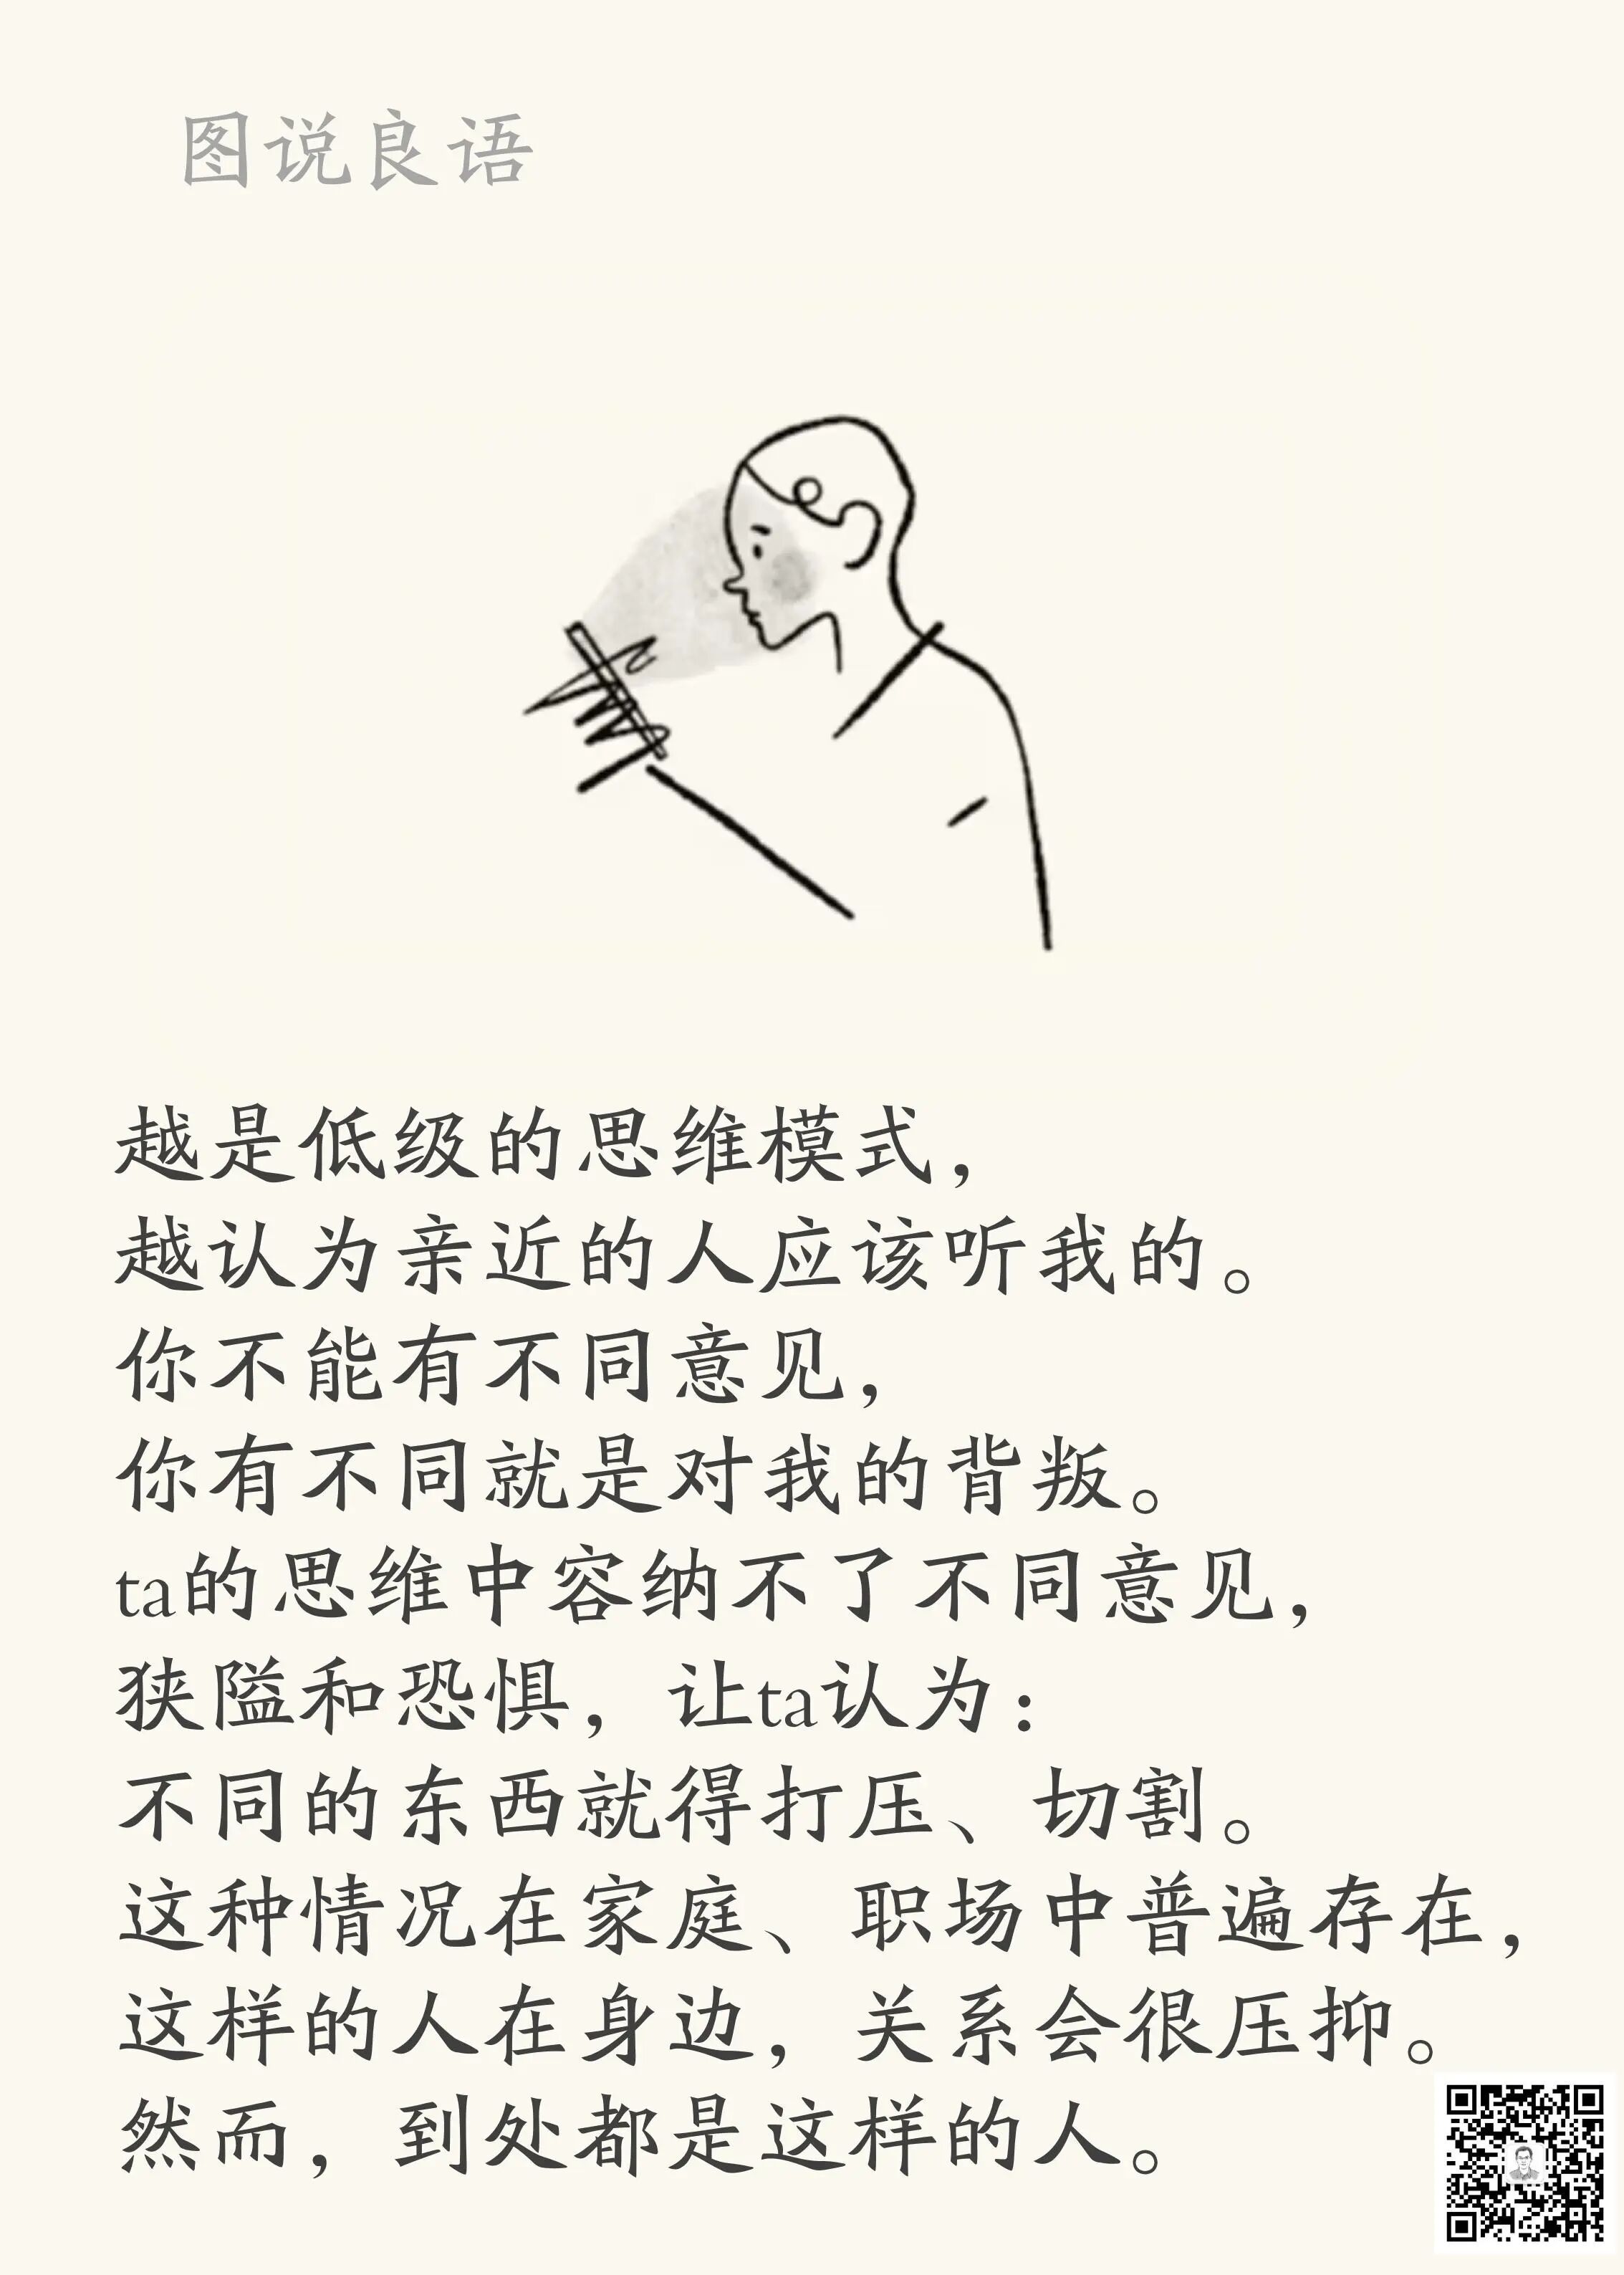 图说良语
越是低级的思维模式，
越认为亲近的人应该听我的。
你不能有不同意见，
你有不同就是对我的背叛。
ta的思维中容纳不了不同意见，
狭隘和恐惧，让ta认为：
不同的东西就得打压、切割。
这种情况在家庭、职场中普遍存在，
这样的人在身边，关系会很压抑。
然而，到处都是这样的人。